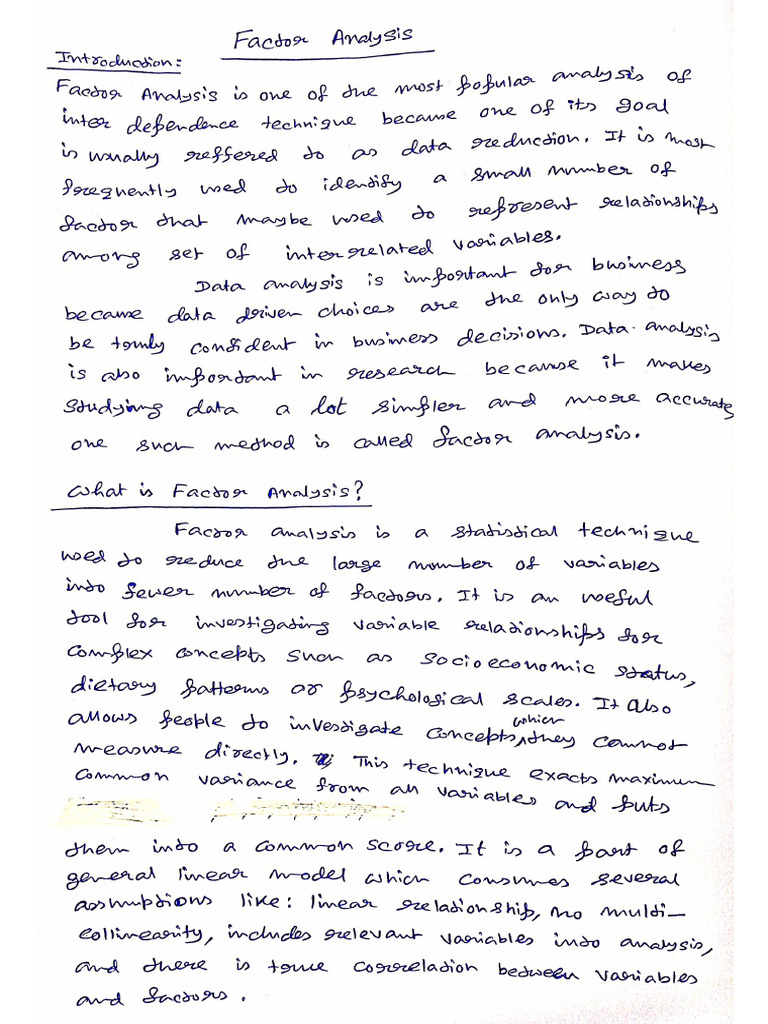 Factor Analysis
Introduction:
Factor Analysis is one of the most popular analysis of
inter dependence technique because one of its goal
is usually reffered to as data reduction. It is most
frequently used to identify a small number of
factor that maybe used to represent relationships
among set of interrelated variables.
Data analysis is important for business
because data driven choices are the only way to
be truly confident in business decisions. Data analysis
is also important in research because it makes
studying data a lot simpler and more accurate
one such method is called factor analysis.
What is Factor Analysis?
Factor analysis is a statistical technique
used to reduce the large number of variables
into fewer number of factors. It is an useful
tool for investigating variable relationships for
complex concepts such as socioeconomic status,
dietary patterns or psychological scales. It also
allows people to investigate concepts, which they cannot
measure directly. This technique exacts maximum
common variance from all variables and puts
them into a common score. It is a part of
general linear model which consumes several
assumptions like: linear relationship, no multi-
collinearity, includes relevant variables into analysis,
and there is true correlation between variables
and factors.